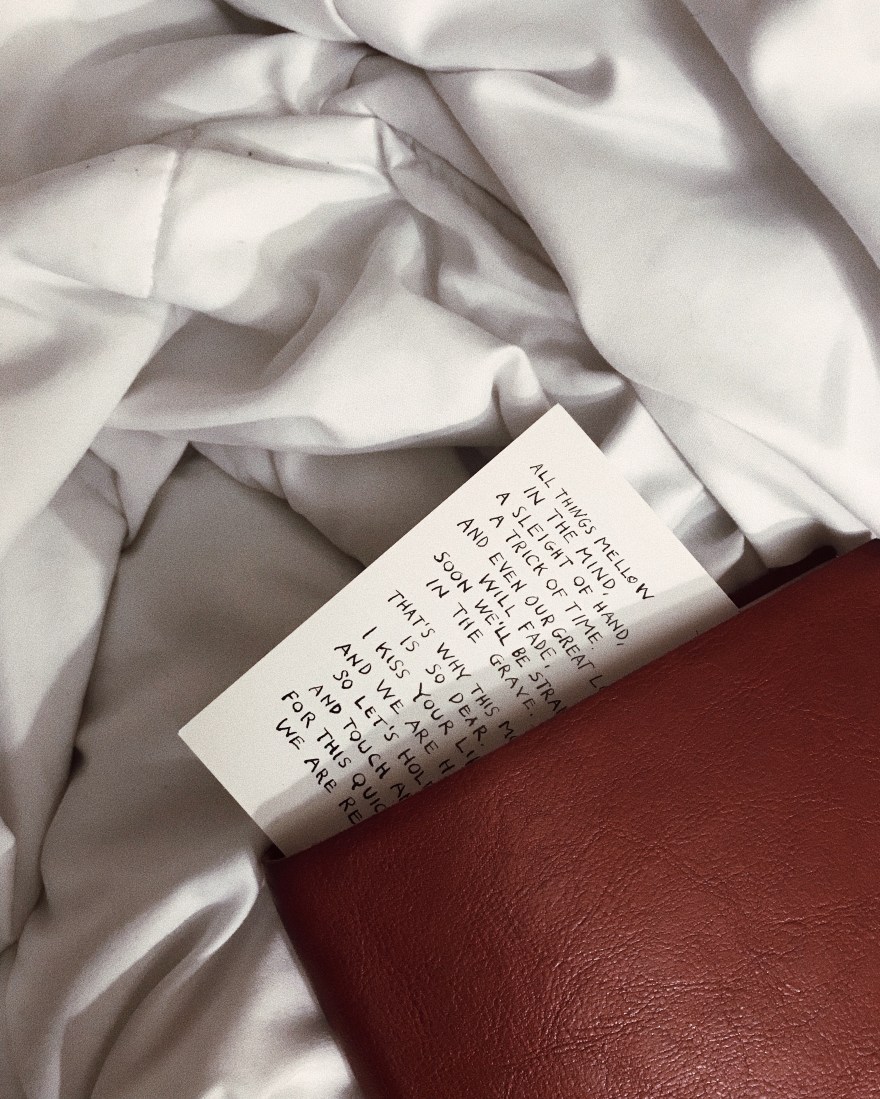 ALL THINGS MELLOW
IN THE MIND,
A SLEIGHT OF HAND,
A TRICK OF TIME.
AND EVEN OUR GREAT
WILL FADE,
SOON WE'LL BE
IN THE GRAVE.
THAT'S WHY THIS
IS SO DEAR.
I KISS YOUR
AND WE ARE
SO LET'S
AND TOUCH
FOR THIS
WE ARE